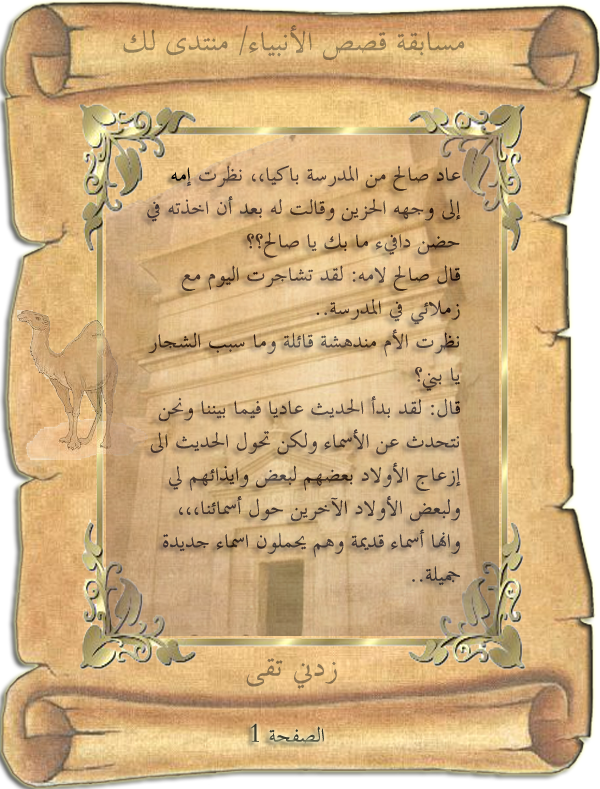 مسابقة قصص الأنبياء/ منتدى لك
عاد صالح من المدرسة باكيا،، نظرت إمه
إلى وجهه الحزين وقالت له بعد أن اخذته في
حضن دافيء ما بك يا صالح؟؟
قال صالح لامه: لقد تشاجرت اليوم مع
زملائي في المدرسة..
نظرت الأم مندهشة قائلة وما سبب الشجار
يا بني؟
قال: لقد بدأ الحديث عاديا فيما بيننا ونحن
نتحدث عن الأسماء ولكن تحول الحديث الى
إزعاج الأولاد بعضهم لبعض وايذائهم لي
ولبعض الأولاد الآخرين حول أسمائنا،،،
وانها أسماء قديمة وهم يحملون اسماء جديدة
جميلة..
زدني تقى
الصفحة 1